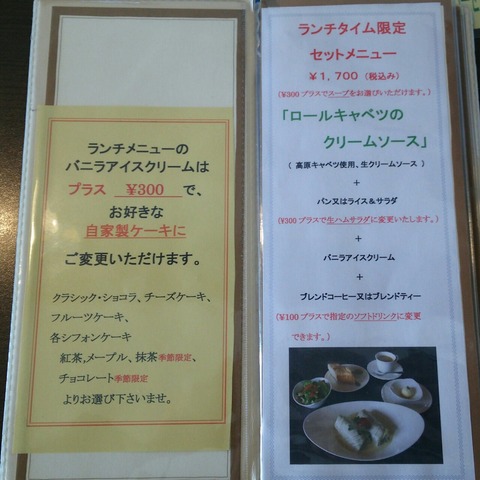 ランチメニューの
バニラアイスクリームは
プラス ¥300 で、
お好きな
自家製ケーキに
ご変更いただけます。
クラシック・ショコラ、チーズケーキ、
フルーツケーキ、
各シフォンケーキ
紅茶,メープル、抹茶季節限定、
チョコレート季節限定
よりお選び下さいませ。
ランチタイム限定
セットメニュー
¥1,700（税込み）
(¥300プラスでスープをお選びいただけます。)
「ロールキャベツの
クリームソース」
( 高原キャベツ使用、生クリームソース )
+
パン又はライス&サラダ
(¥300プラスで生ハムサラダに変更いたします。)
+
バニラアイスクリーム
+
ブレンドコーヒー又はブレンドティー
(¥100プラスで指定のソフトドリンクに変更
できます。)